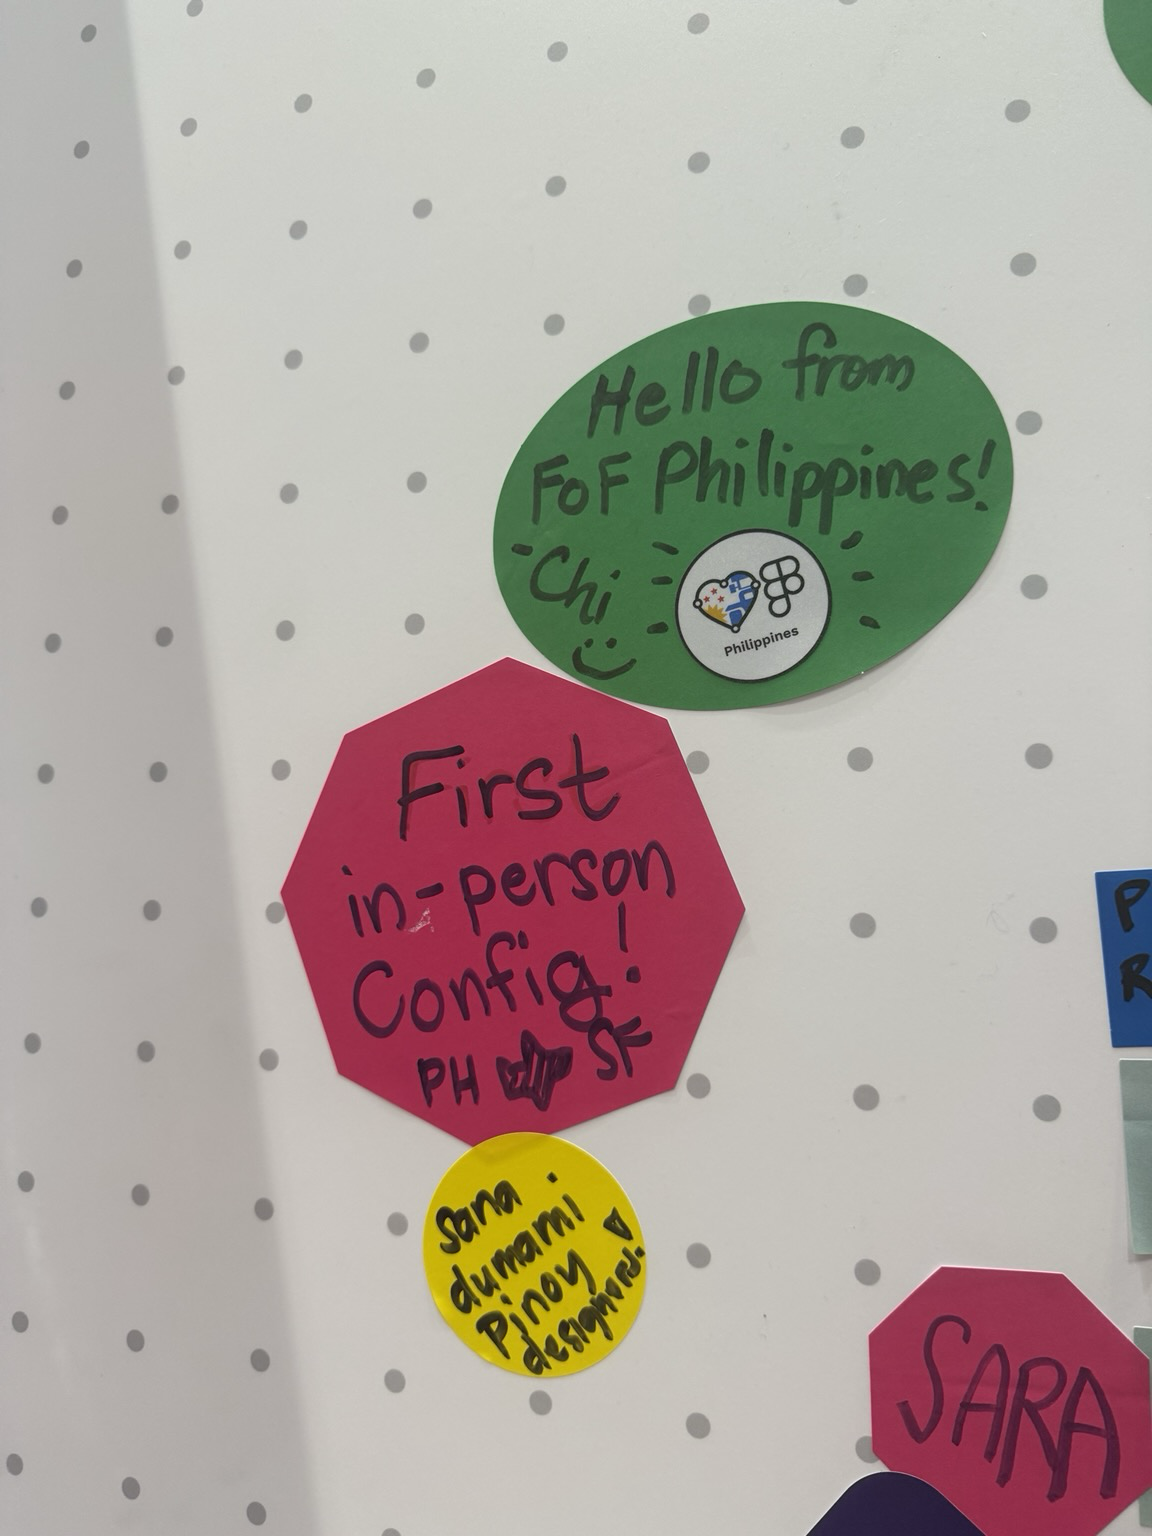 Hello from
FoF Philippines!
-Chi
Philippines
First
in-person
Config!
PH SF
Sana
dumami
Pinoy
designers!
P
R
SARA